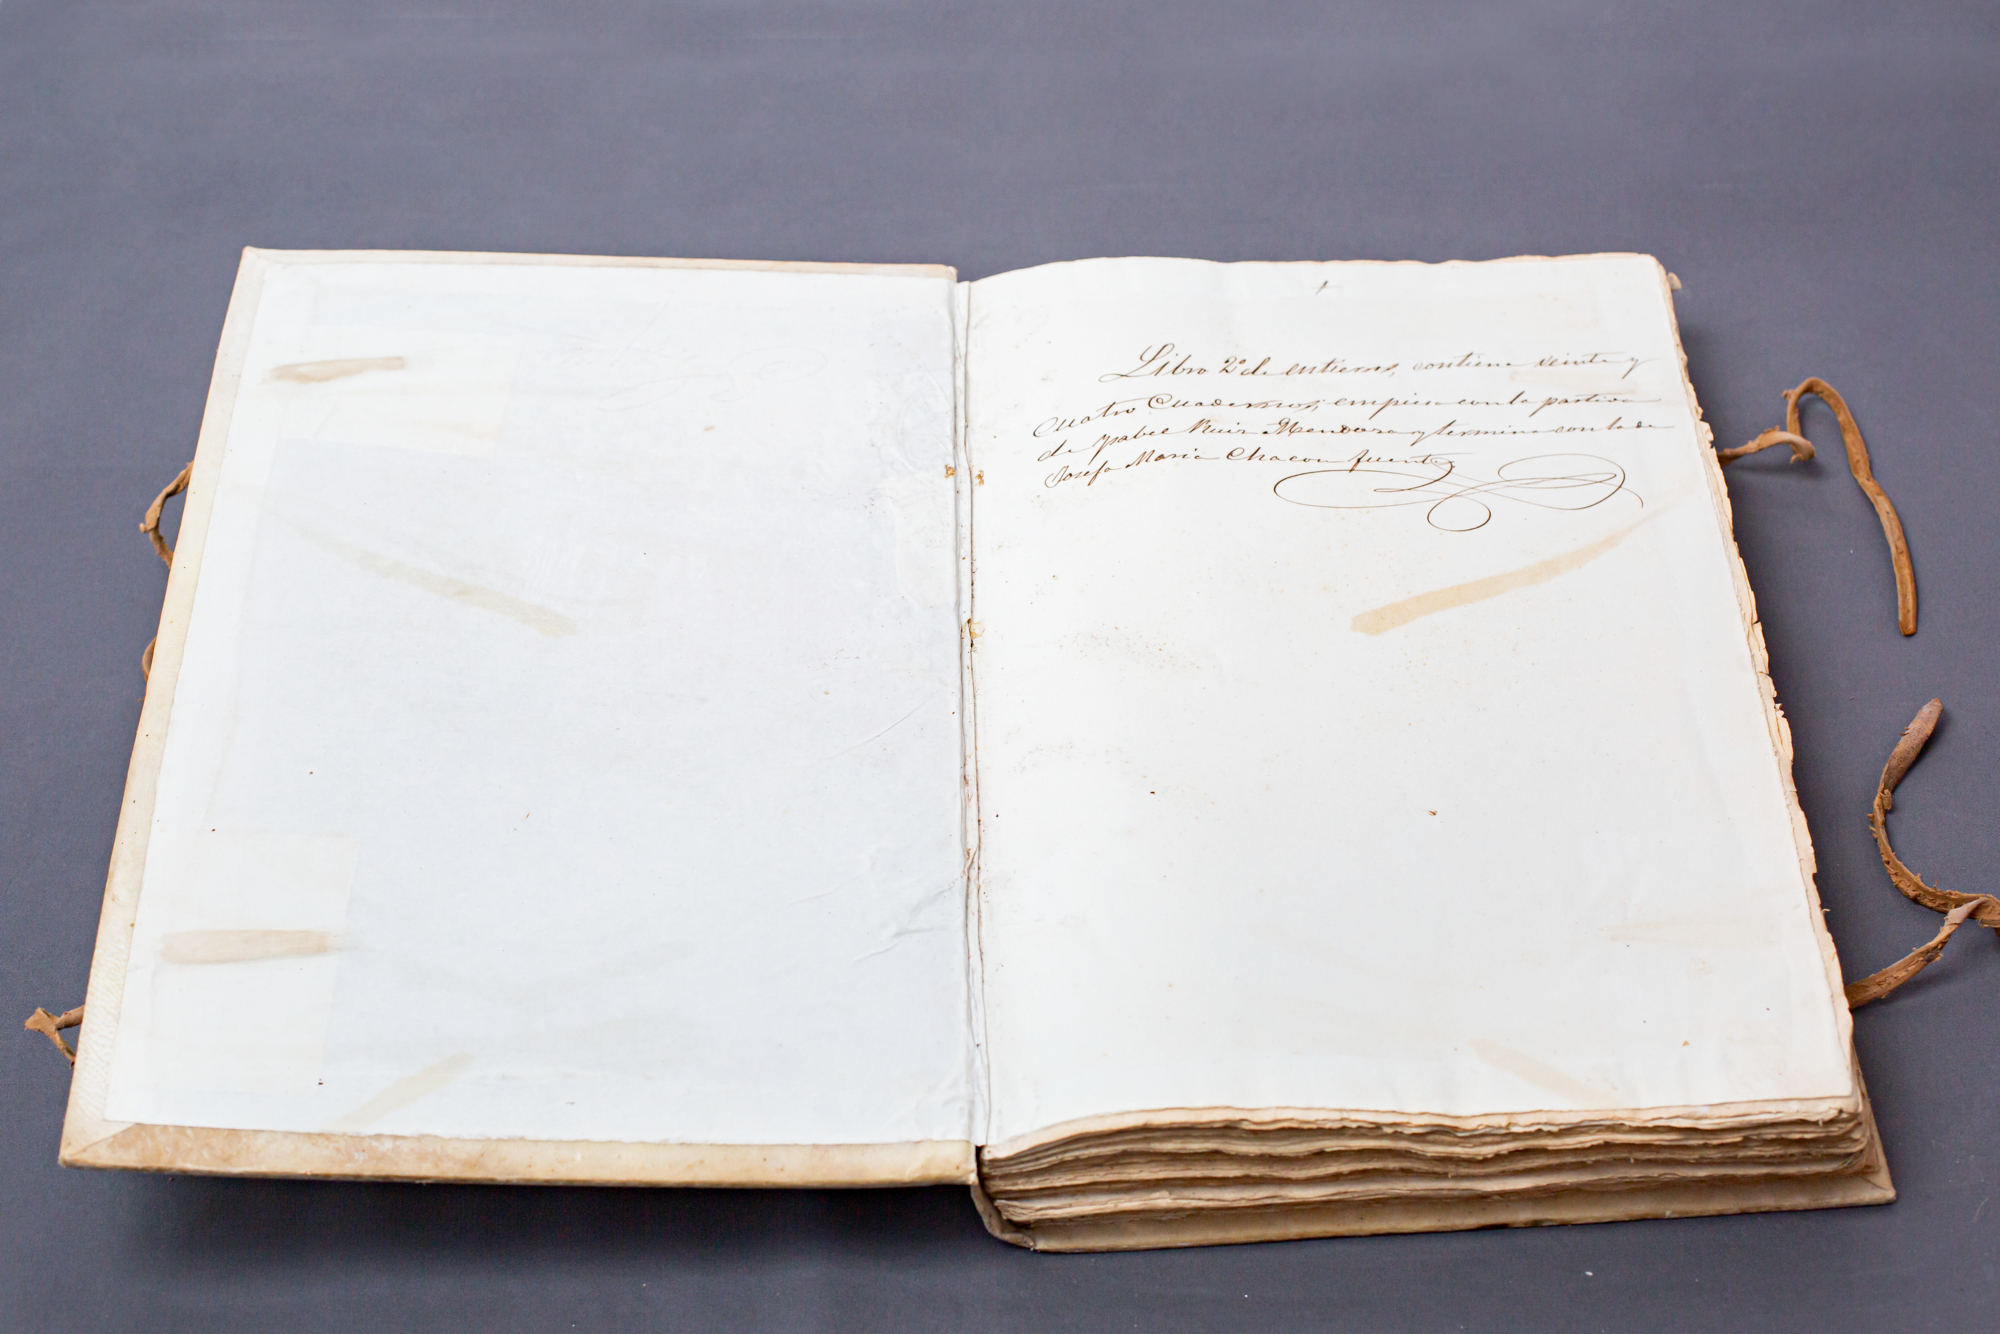 Libro 2º de entierros, contiene veinte y
cuatro Cuadernos; empieza con la partida
de Ysabel Ruiz Mendoza y termina con la de
Josefa Maria Chacon fuentes